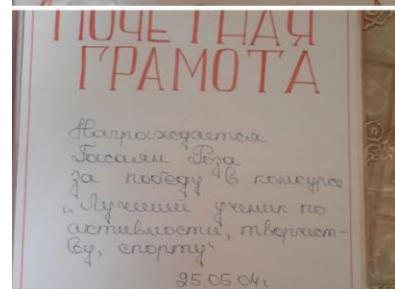 ПОЧЕТНАЯ
ГРАМОТА
Награждается
Басалян Роза
за победу в конкурсе
„Лучший ученик по
активности, творчест-
ву, спорту“
25.05.04г